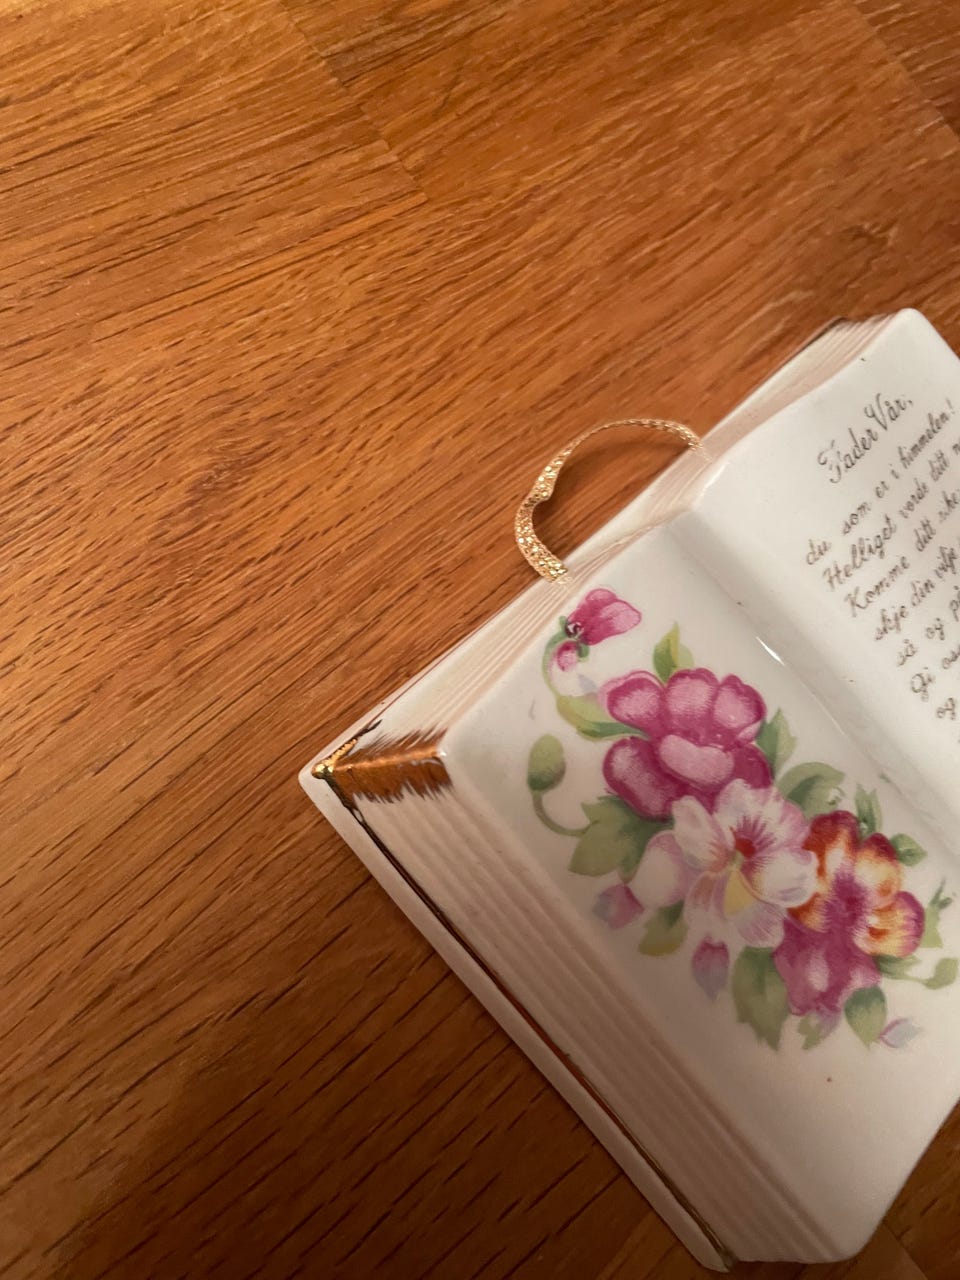 Fader Vår,
du som er i himmelen!
Helliget vorde ditt
Komme ditt
skje din vilje
så og på
Gi
og